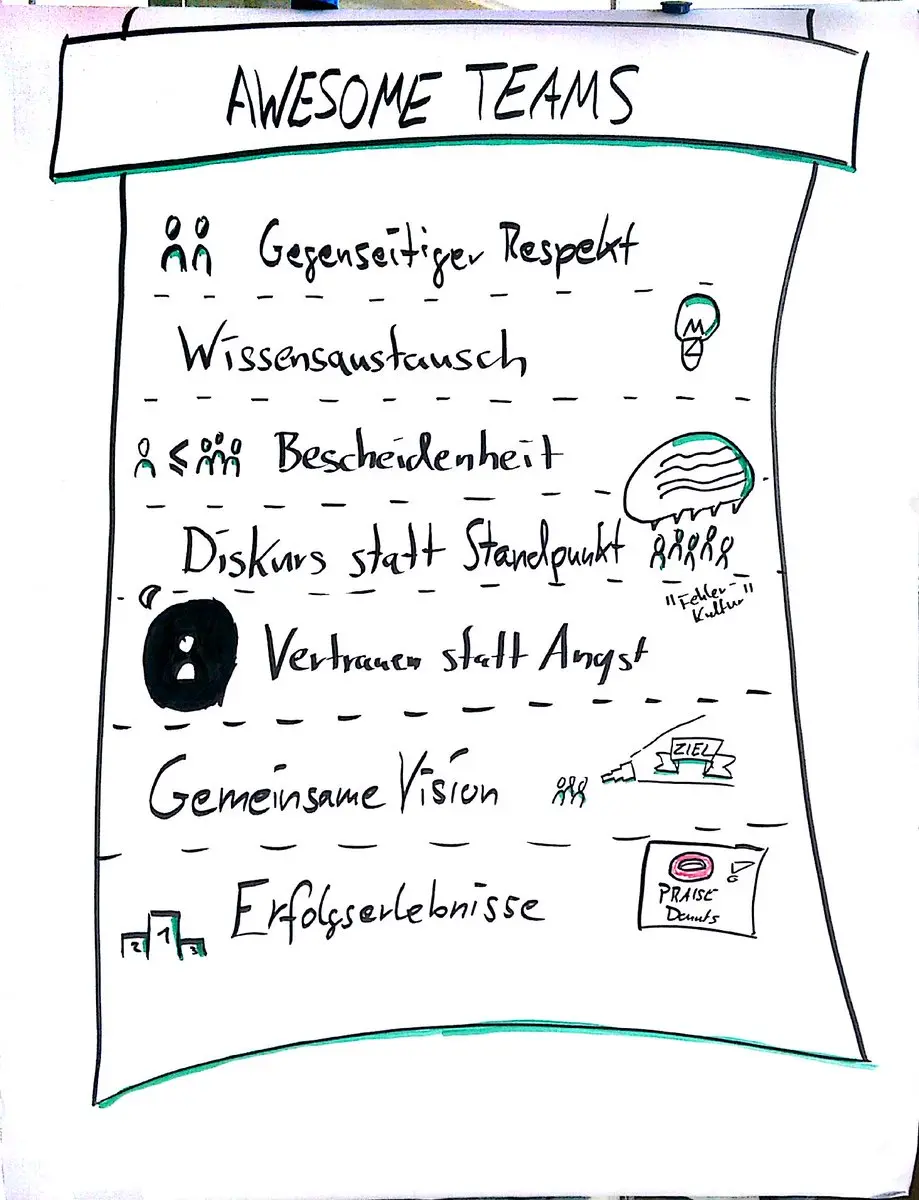 AWESOME TEAMS
Gegenseitiger Respekt
Wissensaustausch
≤ Bescheidenheit
Diskurs statt Standpunkt
"Fehler-
Kultur"
Vertrauen statt Angst
Gemeinsame Vision
ZIEL
Erfolgserlebnisse
2 1 3
PRAISE
Donuts